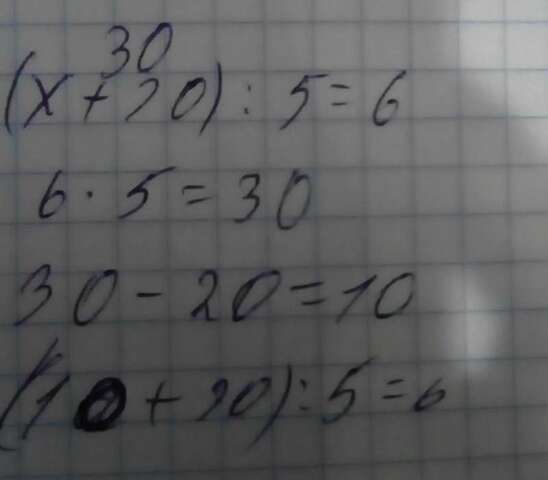 30
(x+20):5=6
6·5=30
30-20=10
(10+20):5=6